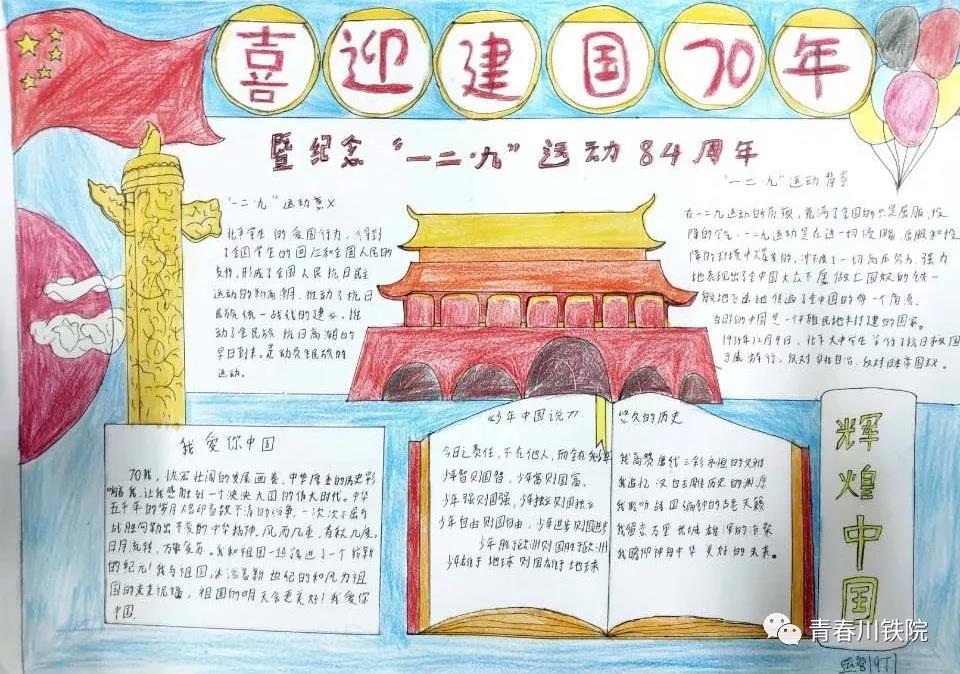 喜迎建国70年
暨纪念“一二·九”运动84周年
“一二·九”运动意义
北平学生的爱国行为,得到
了全国学生的回应和全国人民的
支持,形成了全国人民抗日民主
运动的新高潮,推动了抗日
民族统一战线的建立。推
动了全民族抗日高潮的
早日到来。是动员全民族的
运动。
“一二·九”运动背景
在一二九运动的前夜,
一二九运动是在这一切侵略、屈服和投
降的环境中发生的,冲破了一切高压势力,强力
地表现出了全中国大众不愿做亡国奴的
全中国的每一个角落。
当时的中国是一个半殖民地半封建的国家。
1935年12月9日,北平大中学生举行了抗日救国
示威游行,反对自治,反对日本帝国主义。
我爱你中国
70载,恢宏壮阔的发展画卷,中华厚重的历史影
响着我,让我感触到一个泱泱大国的伟大时代。中华
五千年的岁月烙印着数不清的纷争,一次次不屈与
战胜勾勒出不变的中华精神。风雨几重,春秋几度,
日月流转,我和祖国一起踏进了一个崭新
的纪元!我与祖国,沐浴着新世纪的和风为祖
国的未来祝福,祖国的明天会更美好!我爱你
中国.
《少年中国说》
今日之责任,不在他人,而全在我少年
少年智则国智,少年富则国富,
少年强则国强,少年独立则国独立
少年自由则国自由,少年进步则国进步
少年胜于欧洲则国胜于欧洲
少年雄于地球则国雄于地球
悠久的历史
我高赞唐代三彩永恒的文明
我追忆汉白玉雕历史的渊源
我聆听战国编钟的古老天籁
我留恋万里长城雄浑的
我瞻仰神舟中华美好的未来。
辉煌中国
青春川铁院